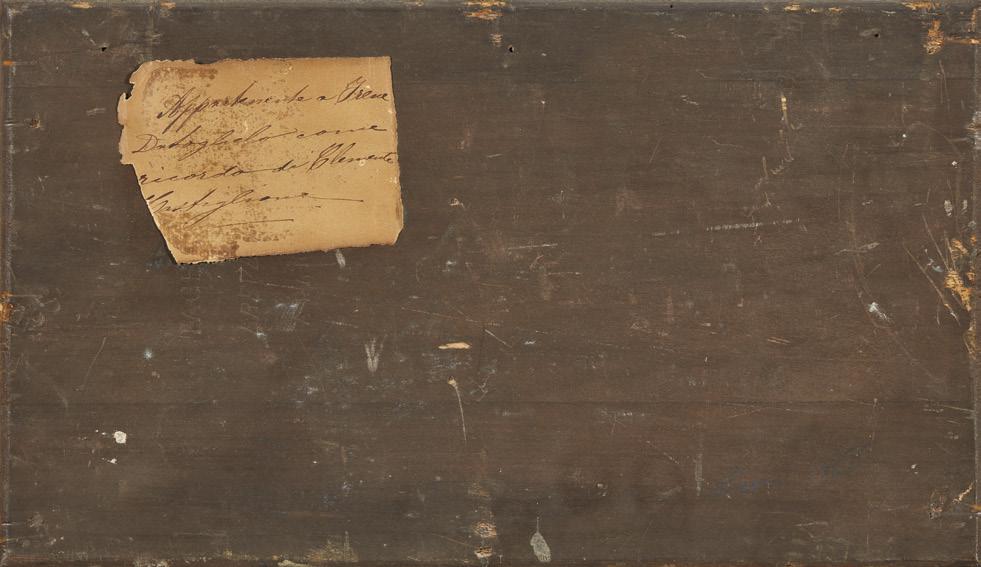 Appartenente a Irene
come
ricordo di Clemente
Castiglione